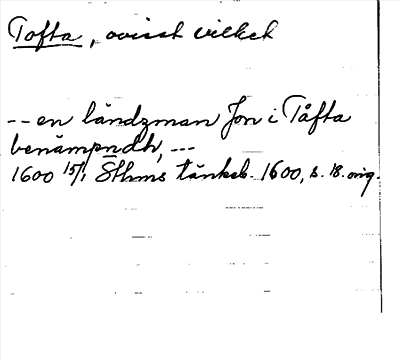 Tofta, ovisst vilket
-- en ländzman Jon i Tåfta
benämpndh, ---
1600 15/1 Sthms tänkeb. 1600, s. 18. orig.